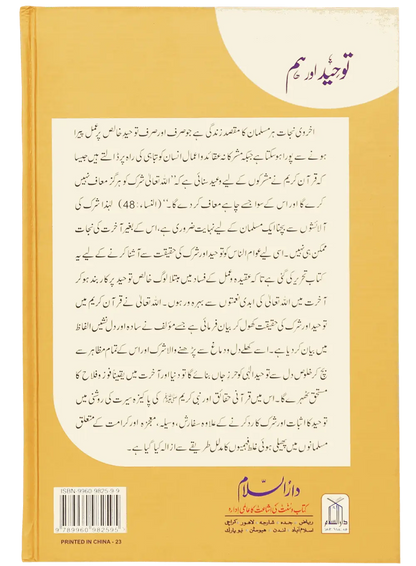 توحید اور ہم
اخروی نجات ہر مسلمان کا مقصد زندگی ہے جو صرف اور صرف توحید خالص پر عمل پیرا
ہونے سے پورا ہو سکتا ہے جبکہ مشرکانہ عقائد و اعمال انسان کو تباہی کی راہ پر ڈالتے ہیں جیسا
کہ قرآن کریم نے مشرکوں کے لیے وعید سنائی ہے کہ ’’اللہ تعالیٰ شرک کو ہرگز معاف نہیں
کرے گا اور اس کے سوا جسے چاہے معاف کر دے گا۔‘‘ (النساء:48) لہٰذا شرک کی
آلائشوں سے بچنا ایک مسلمان کے لیے نہایت ضروری ہے، اس کے بغیر آخرت کی نجات
ممکن ہی نہیں۔ اسی لیے عوام الناس کو توحید اور شرک کی حقیقت سے آشنا کرنے کے لیے یہ
کتاب تحریر کی گئی ہے تاکہ عقیدہ و عمل کے فساد میں مبتلا لوگ خالص توحید پر کاربند ہو کر
آخرت میں اللہ تعالیٰ کی ابدی نعمتوں سے بہرہ ور ہوں۔ اللہ تعالیٰ نے قرآن کریم میں
توحید اور شرک کی حقیقت کھول کر بیان فرمائی ہے جسے مؤلف نے سادہ اور دل نشیں الفاظ
میں بیان کر دیا ہے۔ اسے کھلے دل و دماغ سے پڑھنے والا شرک اور اس کے تمام مظاہر سے
بچ کر خلوص دل سے توحید الٰہی کو حرز جاں بنائے گا تو دنیا اور آخرت میں یقیناً فوز و فلاح کا
مستحق ٹھہرے گا۔ اس میں قرآنی حقائق اور نبی کریم ﷺ کی پاکیزہ سیرت کی روشنی میں
توحید کا اثبات اور شرک کا رد کرنے کے علاوہ سفارش، وسیلہ، معجزہ اور کرامت کے متعلق
مسلمانوں میں پھیلی ہوئی غلط فہمیوں کا مدلل طریقے سے ازالہ کیا گیا ہے۔
دارالسلام
کتاب و سنت کی اشاعت کا عالمی ادارہ
ریاض۔ جدہ۔ شارجہ۔ لاہور۔ کراچی
اسلام آباد۔ لندن۔ ہیوسٹن۔ نیویارک
دارالسلام
ISBN-9960 9825 9 9
9 789960 982595
PRINTED IN CHINA - 23